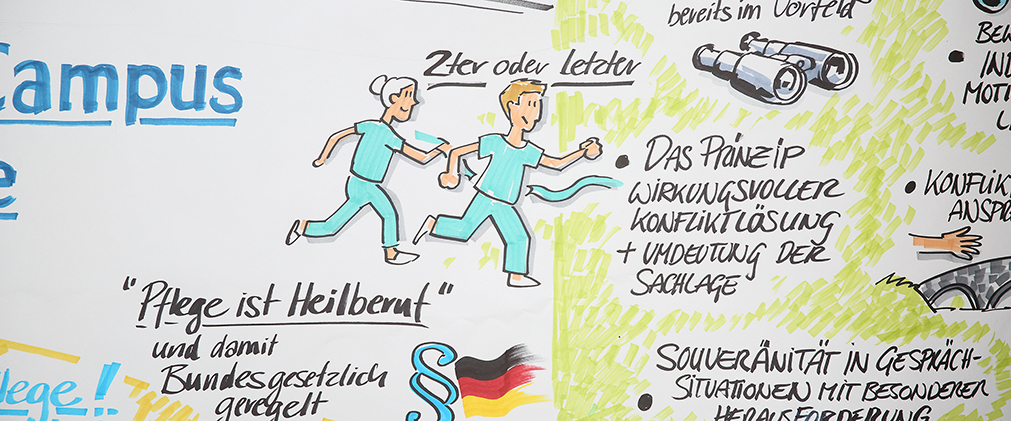 Campus
2ter oder Letzter
"Pflege ist Heilberuf"
und damit
Bundesgesetzlich
geregelt
§
bereits im Vorfeld
• DAS PRINZIP
WIRKUNGSVOLLER
KONFLIKTLÖSUNG
+ UMDEUTUNG DER
SACHLAGE
• SOUVERÄNITÄT IN GESPRÄCH-
SITUATIONEN MIT BESONDERER
HERAUSFORDERUNG